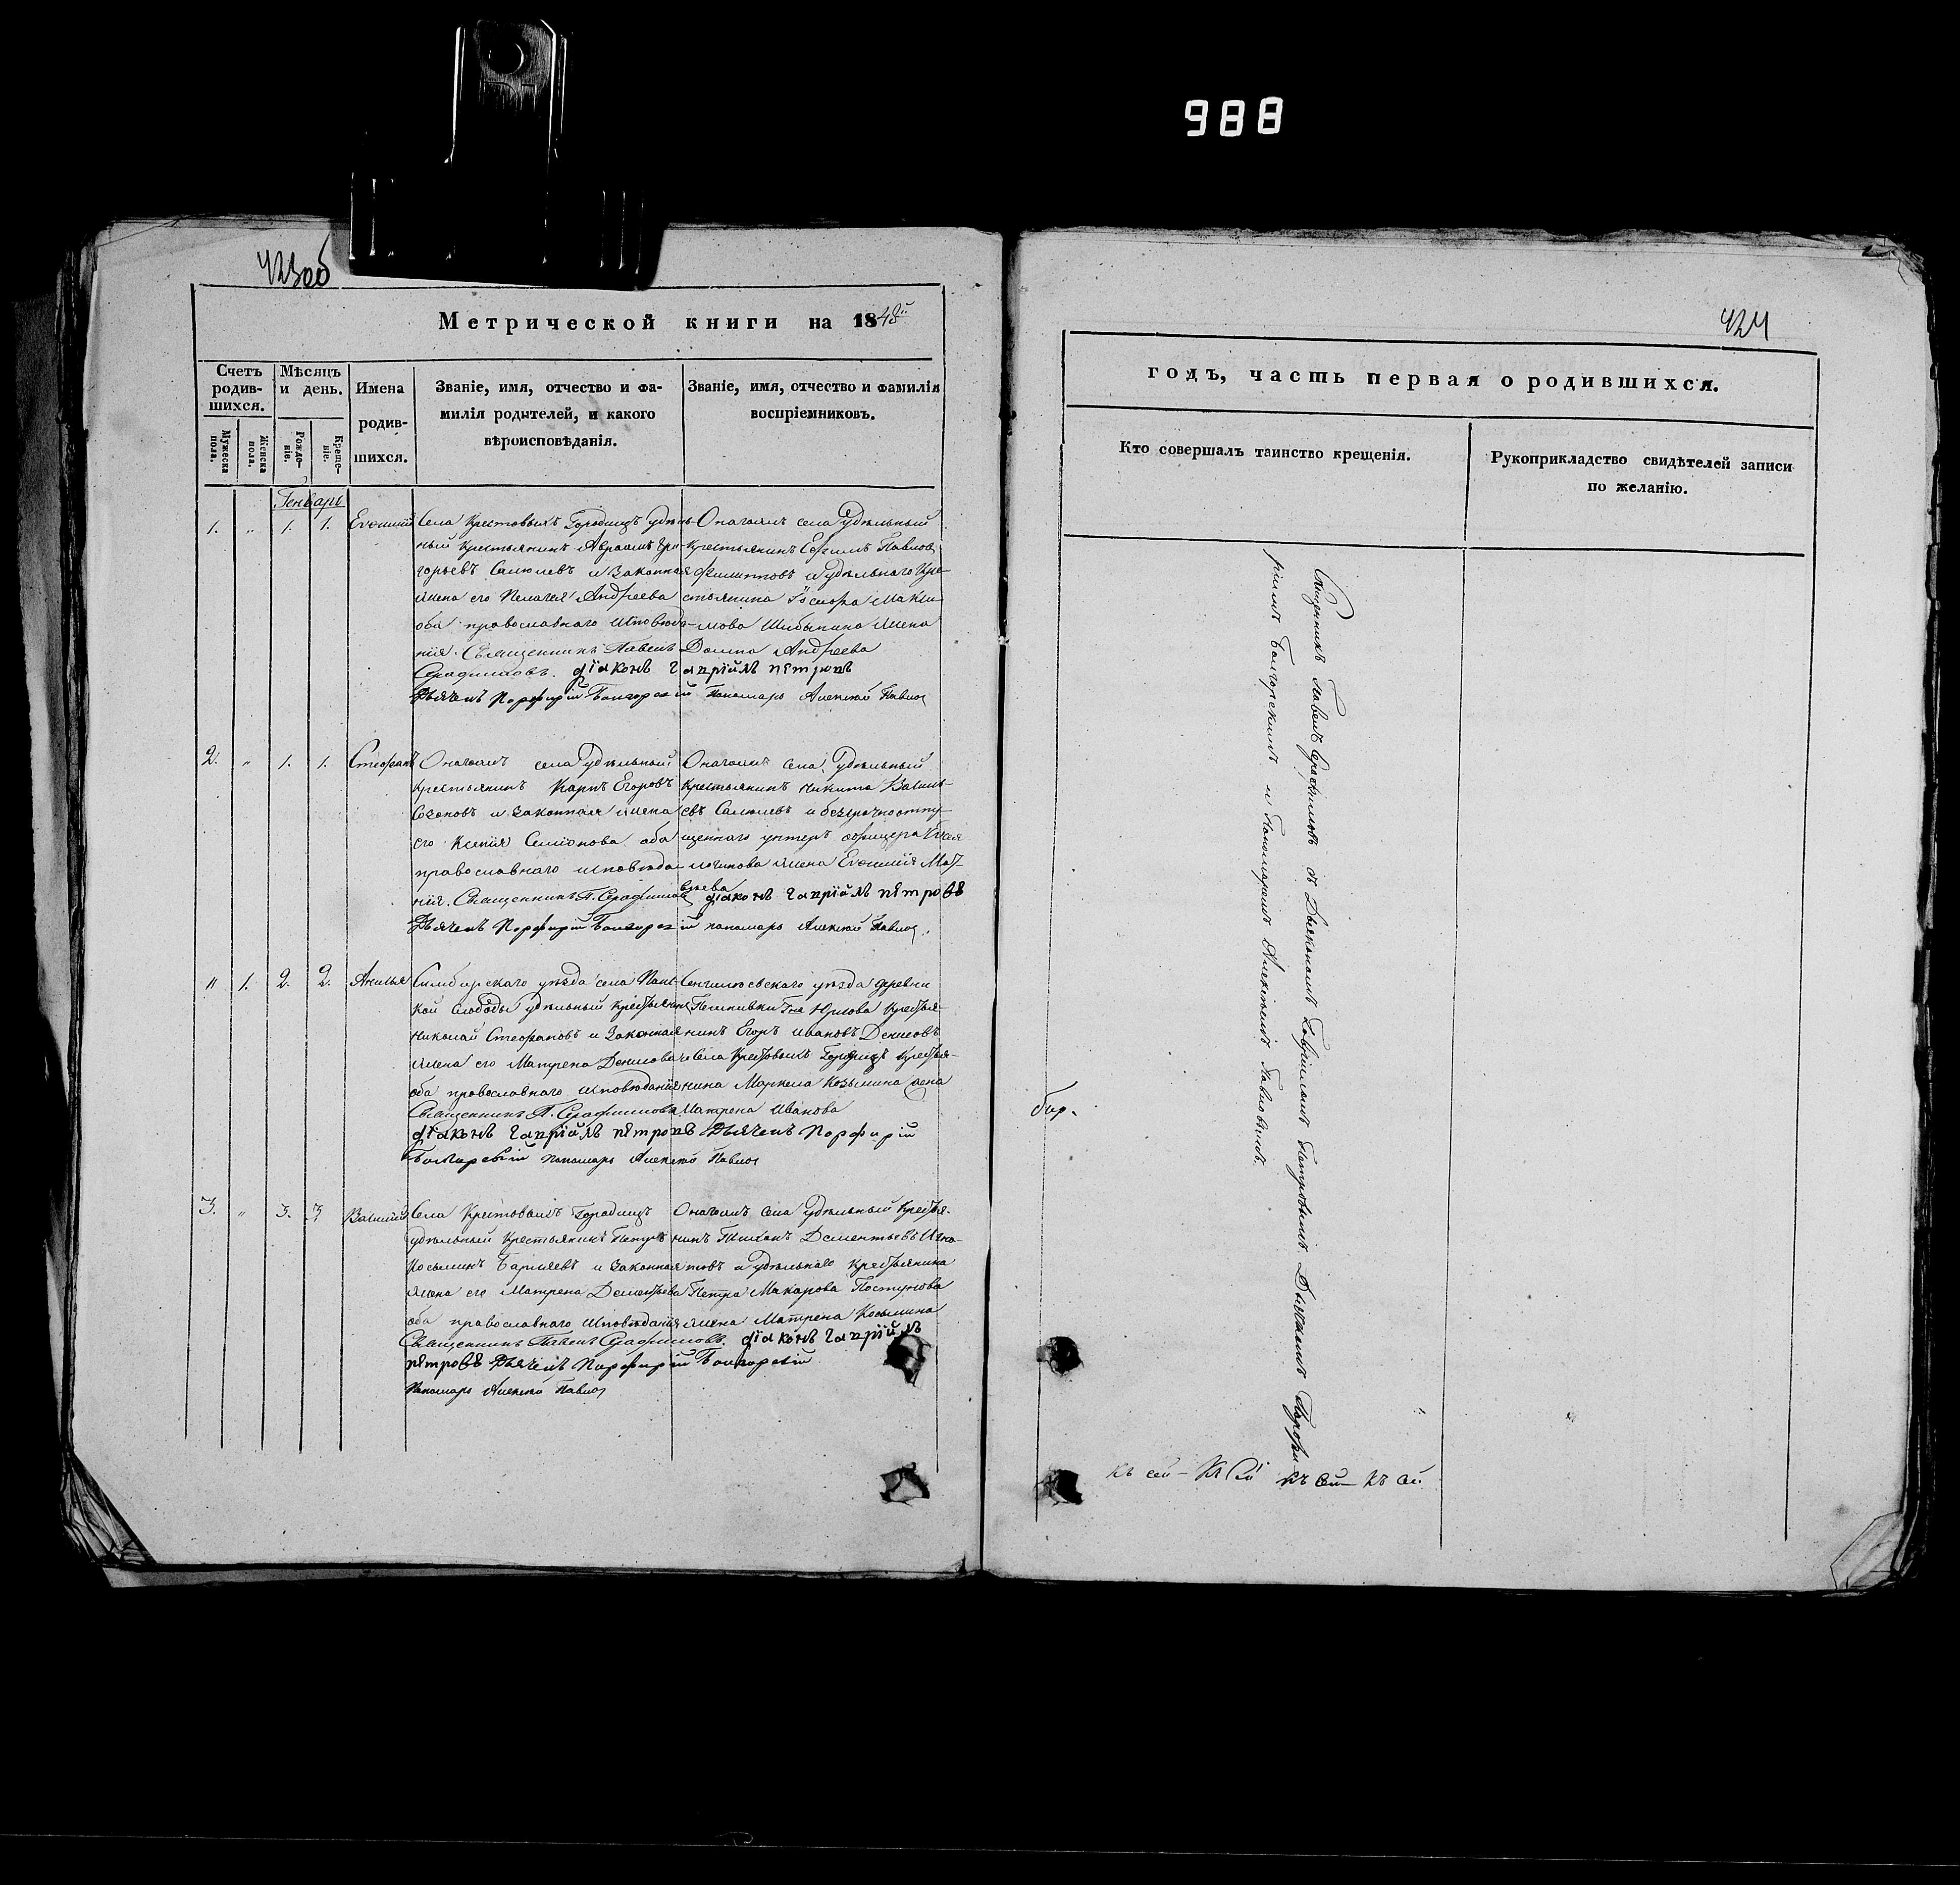 988
423об
Метрической книги на 1848й
Счетъ родив-шихся.
Мѣсяцъ и день.
Имена родив-шихся.
Званіе, имя, отчество и фа-
милія родителей, и какого
вѣроисповѣданія.
Званіе, имя, отчество и фамилія
воспріемниковъ.
Мужеска пола.
Женска пола.
Рожде-ніе.
Креще-ніе.
Генварь
1. " 1. 1. Евѳимій
Села Крестовыхъ Городищъ удѣль-
ный крестьянинъ Авраамъ Гри-
горьевъ Самолевъ и законная
жена его Пелагея Андреева
оба православнаго исповѣда-
нія. Священникъ Павелъ
Серафимовъ. діаконъ гавріилъ петровъ
Дьячекъ Порфирій Болгорскій Пономарь Алексѣй Павлов
Онагожъ села удѣльный
крестьянинъ Ефимъ Павлов
Филиповъ и удѣльнаго кре-
стьянина Макси-
мова Шибынина жена
Домна Андреева
2. " 1. 1. Стефанъ
Онагожъ села удѣльный
крестьянинъ Карпъ Егоровъ
и законная жена
его Ксенія Семіонова оба
православнаго исповѣда-
нія. Священникъ П. Серафимов діаконъ гавріилъ петровъ
Дьячекъ Порфирій Болгорскій пономарь Алексѣй Павлов
Онагожъ села, удѣльный
крестьянинъ Никита Василь-
евъ Самолевъ и безсрочноотпу-
щеннаго унтеръ офицера
жена Евѳимія Мат-
вѣева
" 1. 2. 2. Акилья
Симбирскаго уѣзда села
кой Слободы удѣльный крестьянинъ
Николай Стефановъ и законная
жена его Матрена Денисова
оба православнаго исповѣданія
Священникъ П. Серафимовъ
діаконъ гавріилъ петровъ Дьячекъ Порфирій
Болгорскій пономарь Алексѣй Павлов
Сенгилеевскаго уѣзда деревни
Гна Юрлова крестья-
нинъ Егоръ Ивановъ Денисовъ
и села Крестовыхъ Городищъ крестья-
нина Маркела Козьмина жена
Матрена Иванова
3. " 3. 3. Василій
Села Крестовыхъ Городищъ
удѣльный крестьянинъ Петръ
Косьминъ и законная
жена его Матрена Дементьева
оба православнаго исповѣданія
Священникъ Павелъ Серафимовъ. діаконъ гавріилъ
петровъ Дьячекъ Порфирій Болгорскій
Пономарь Алексѣй Павлов
Онагожъ села удѣльный крестья-
нинъ Тихонъ Дементьевъ Игна-
товъ и удѣльнаго крестьянина
Петра Макарова Постунова
жена Матрена Косьмина
424
годъ, часть первая о родившихся.
Кто совершалъ таинство крещенія.
Рукоприкладство свидѣтелей записи
по желанію.
Священникъ Павелъ Серафимовъ съ Діакономъ Гавріиломъ Петровымъ. Дьячкомъ Порфи-
ріемъ Болгорскимъ и Пономаремъ Алексѣемъ Павловымъ.
къ сей - къ сей къ сей - къ сей